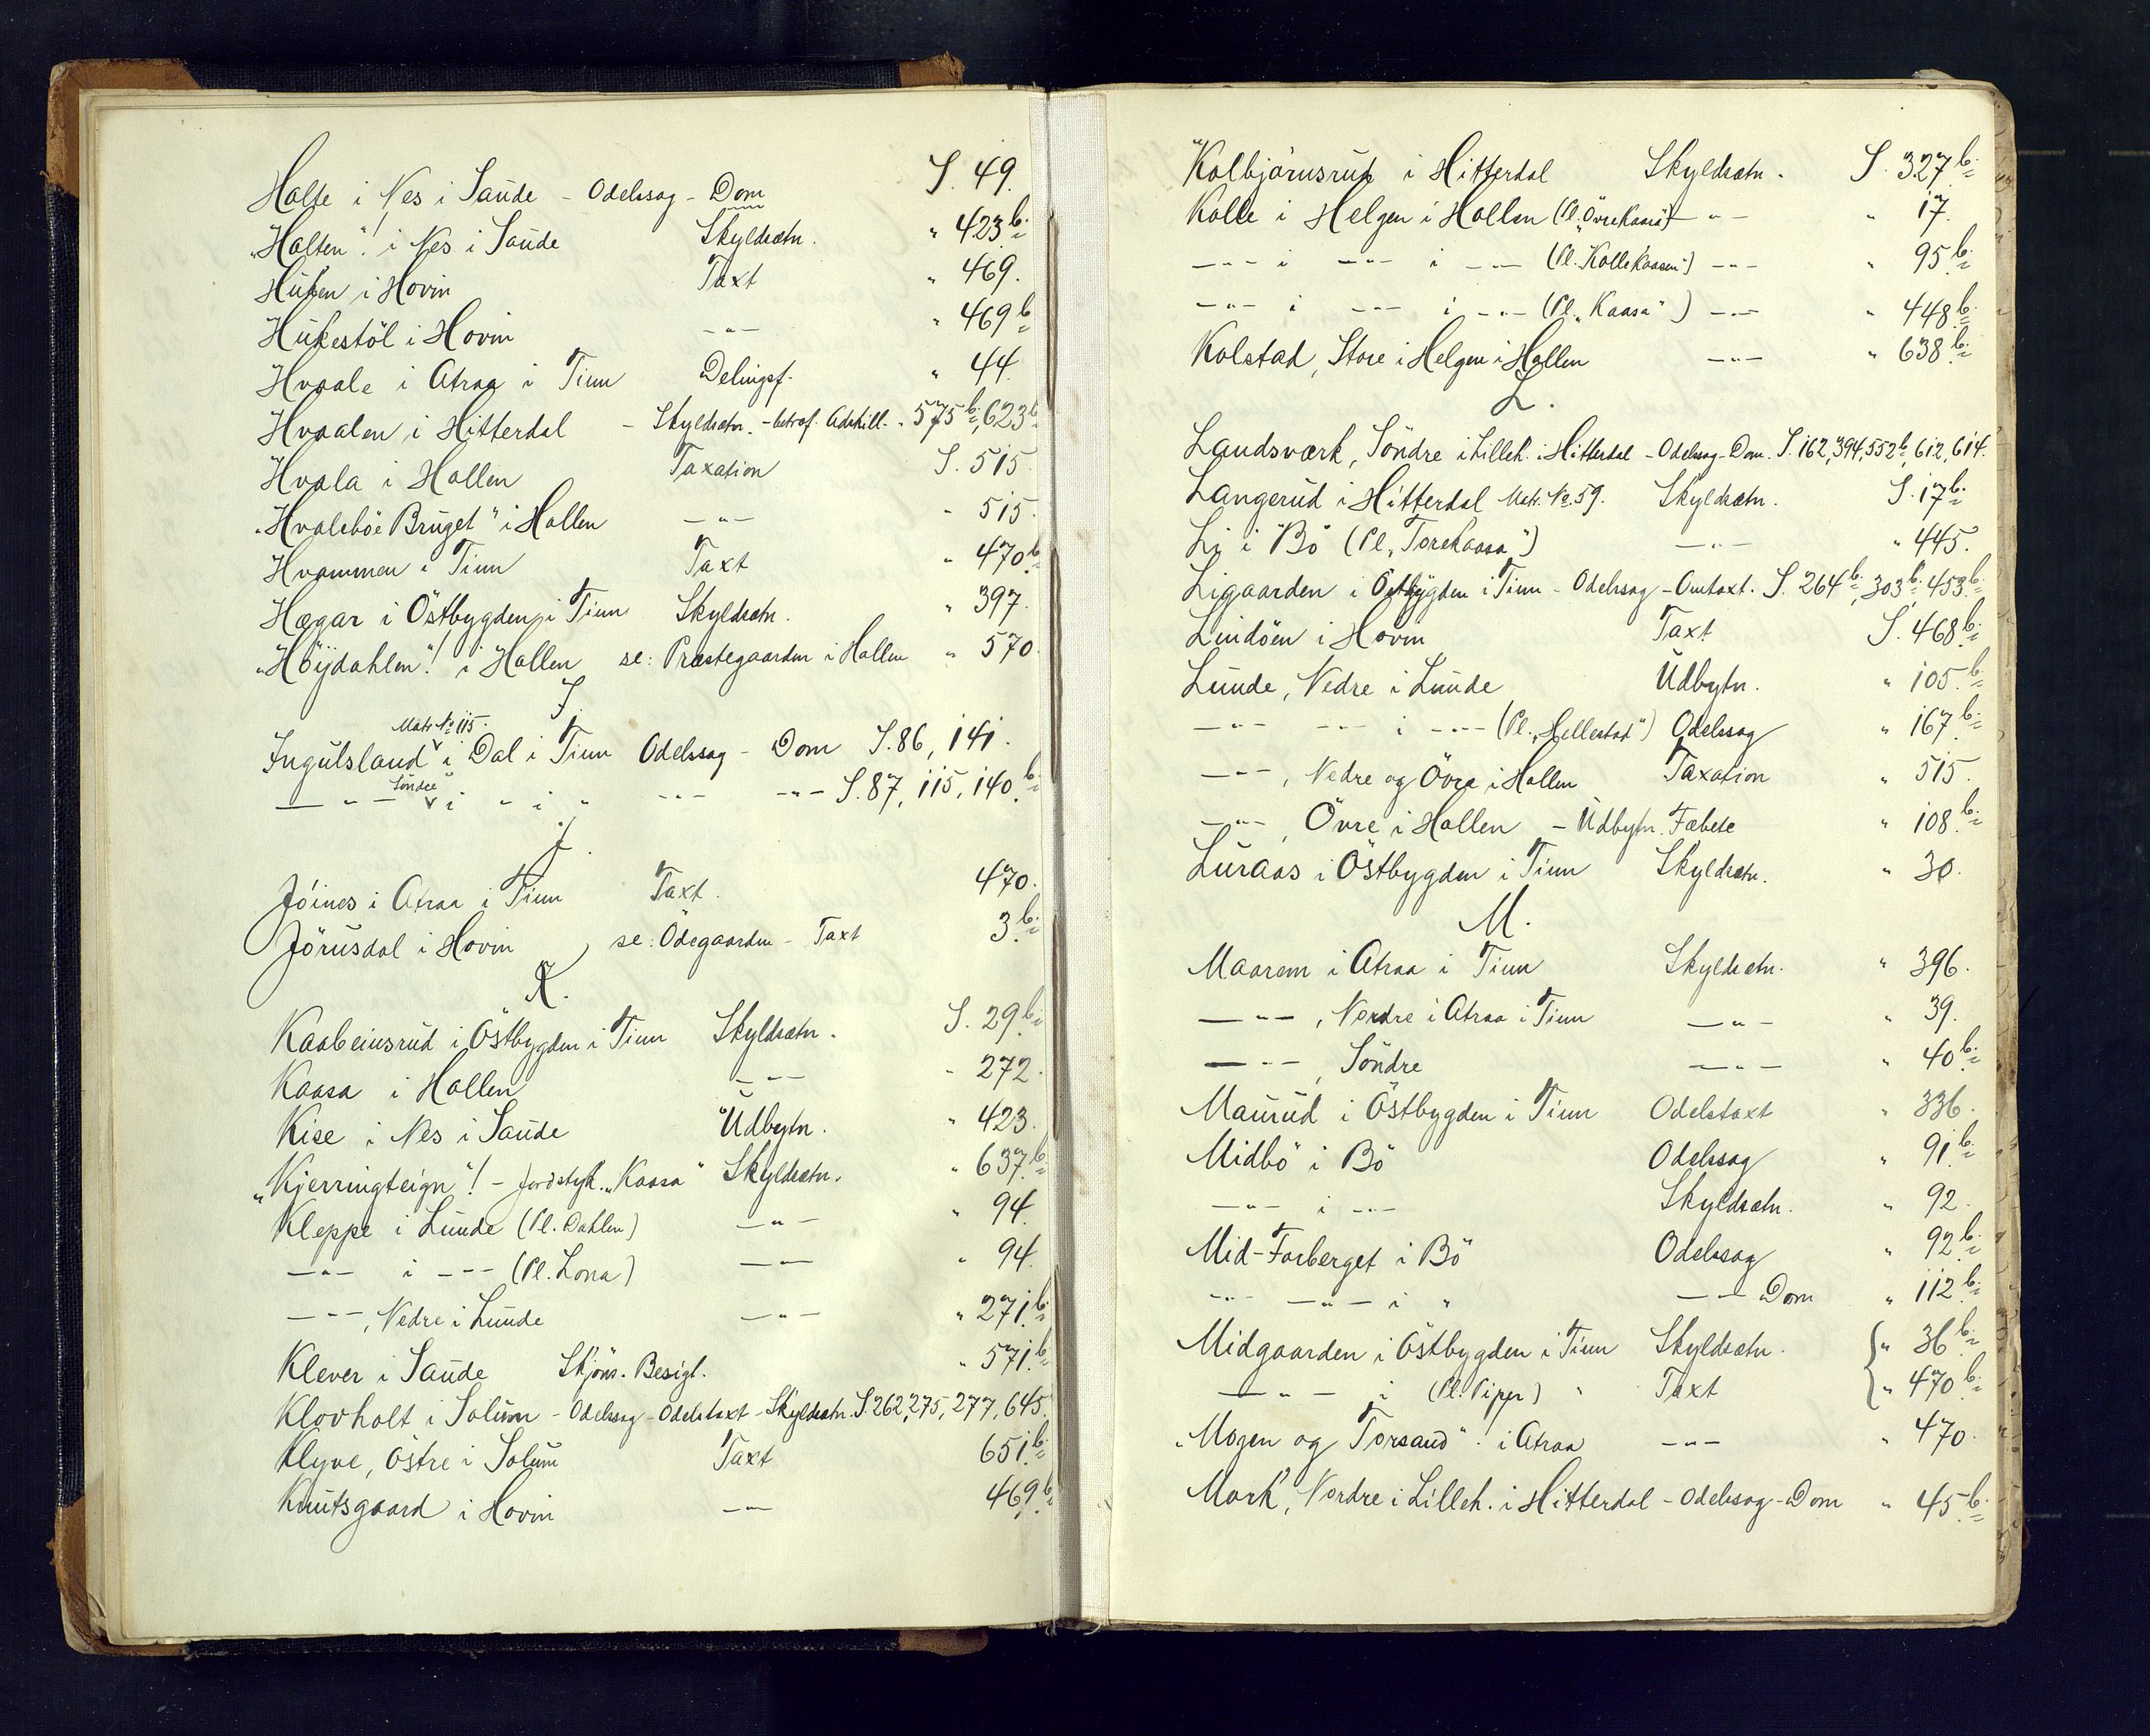 Halte i Nes i Saude - Odelssag - Dom S. 49.
„Halten“! i Nes i Saude Skyldsætn. " 423 b.
Huken i Hovin Taxt " 469.
Hukestöl i Hovin -"- " 469 b
Hvaale i Atraa i Tinn Delingsf. " 44.
Hvaalen i Hitterdal - Skyldsætn. - betræf. Adskill. " 575 b., 623 b
Hvala i Hollen Taxation S. 515.
„Hvalsböe Bruget“ i Hollen -"- " 515.
Hvammen i Tinn Taxt " 470 b.
Hægar i Östbygden i Tinn Skyldsætn. " 397.
„Höijdahlen“! i Hollen se: Præstegaarden i Hollen " 570.
I.
Matr. No 115.
Ingulsland i Dal i Tinn Odelssag - Dom S. 86, 141.
Söndre
-"- i " i " -"- -"- S. 87, 115, 140 b.
J.
Jöines i Atraa i Tinn Taxt. 470.
Jörusdal i Hovin, se: Ödegaarden - Taxt 3 b.
K.
Kaabeinsrud i Östbygden i Tinn Skyldsætn. S. 29 b.
Kaasa i Hollen -"- " 272.
Kise i Nes i Saude Udbytn. " 423.
„Kjerringteign“! - Jordstyk. „Kaasa“ Skyldsætn. " 637 b.
Kleppe i Lunde (Pl. Dahlen) -"- " 94.
-"- i -"- (Pl. Lona) -"- " 94.
-"-, Nedre i Lunde -"- " 271 b.
Klever i Saude Skjöns. Besigt. " 571 b.
Klovholt i Solum - Odelssag - Odelstaxt - Skyldsætn. S. 262, 275, 277, 645.
Klyve, östre i Solum Taxt 651 b.
Knutsgaard i Hovin -"- 469 b.
Kolbjörnsrup i Hitterdal Skyldsætn. S. 327 b.
Kolle i Helgen i Hollen (Pl. „ÖvreKaasa“) -"- " 17.
-"- i -"- i -"- (Pl. „KolleKaasen“) -"- " 95 b.
-"- i -"- i -"- (Pl. „Kaasa“) -"- " 448 b.
Kolstad, Store i Helgen i Hollen -"- " 638 b.
L.
Landsværk, Söndre i Lilleh. i Hitterdal - Odelssag - Dom. S. 162, 394, 552 b, 612, 614.
Langerud i Hitterdal Matr. No. 59. Skyldsætn. S. 17 b.
Li i Bö (Pl. „ToreKaasa“) -"- " 445.
Ligaarden i Östbygden i Tinn - Odelssag - Omtaxt. S. 264 b., 303 b. 453 b.
Lindöen i Hovin Taxt S. 468 b.
Lunde, Nedre i Lunde Udbytn. " 105 b.
-"- -"- i -"- (Pl. „Hellestad“) Odelssag " 167 b.
-"-, Nedre og Övre i Hollen Taxation " 515.
-"-, Övre i Hollen - Udbytn. Fæbete " 108 b.
Luraas i Östbygden i Tinn Skyldsætn. " 30.
M.
Maarem i Atraa i Tinn Skyldsætn. " 396.
-"-, Nordre i Atraa i Tinn -"- " 39.
-"-, Söndre -"- " 40 b.
Maurud i Östbygden i Tinn Odelstaxt " 336.
Midbö i Bö Odelssag " 91 b.
-"- i -"- Skyldsætn. " 92.
Mid-Forberget i Bö Odelssag " 92 b.
-"- -"- i " -"- Dom " 112 b.
Midgaarden i Östbygden i Tinn Skyldsætn. " 36 b.
-"- i (Pl. Piper) " Taxt " 470 b.
„Mogen og Torsaud“! i Atraa -"- " 470.
Mork, Nordre i Lilleh. i Hitterdal - Odelssag - Dom " 45 b.